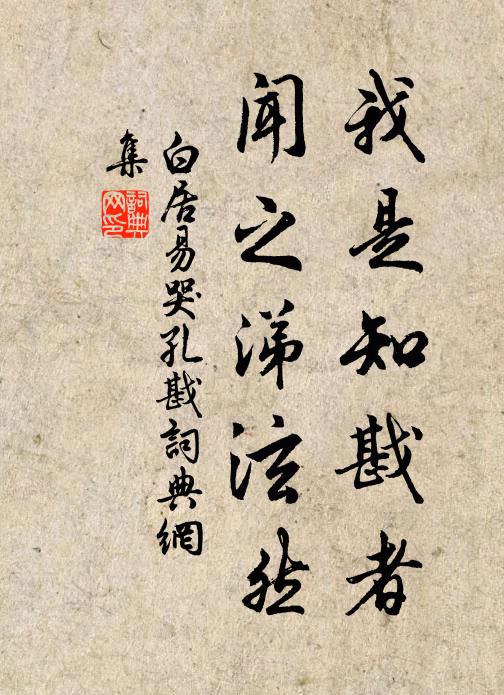 我是知戡者
聞之涕泫然
白居易哭孔戡詞典網
集
詞典
网印